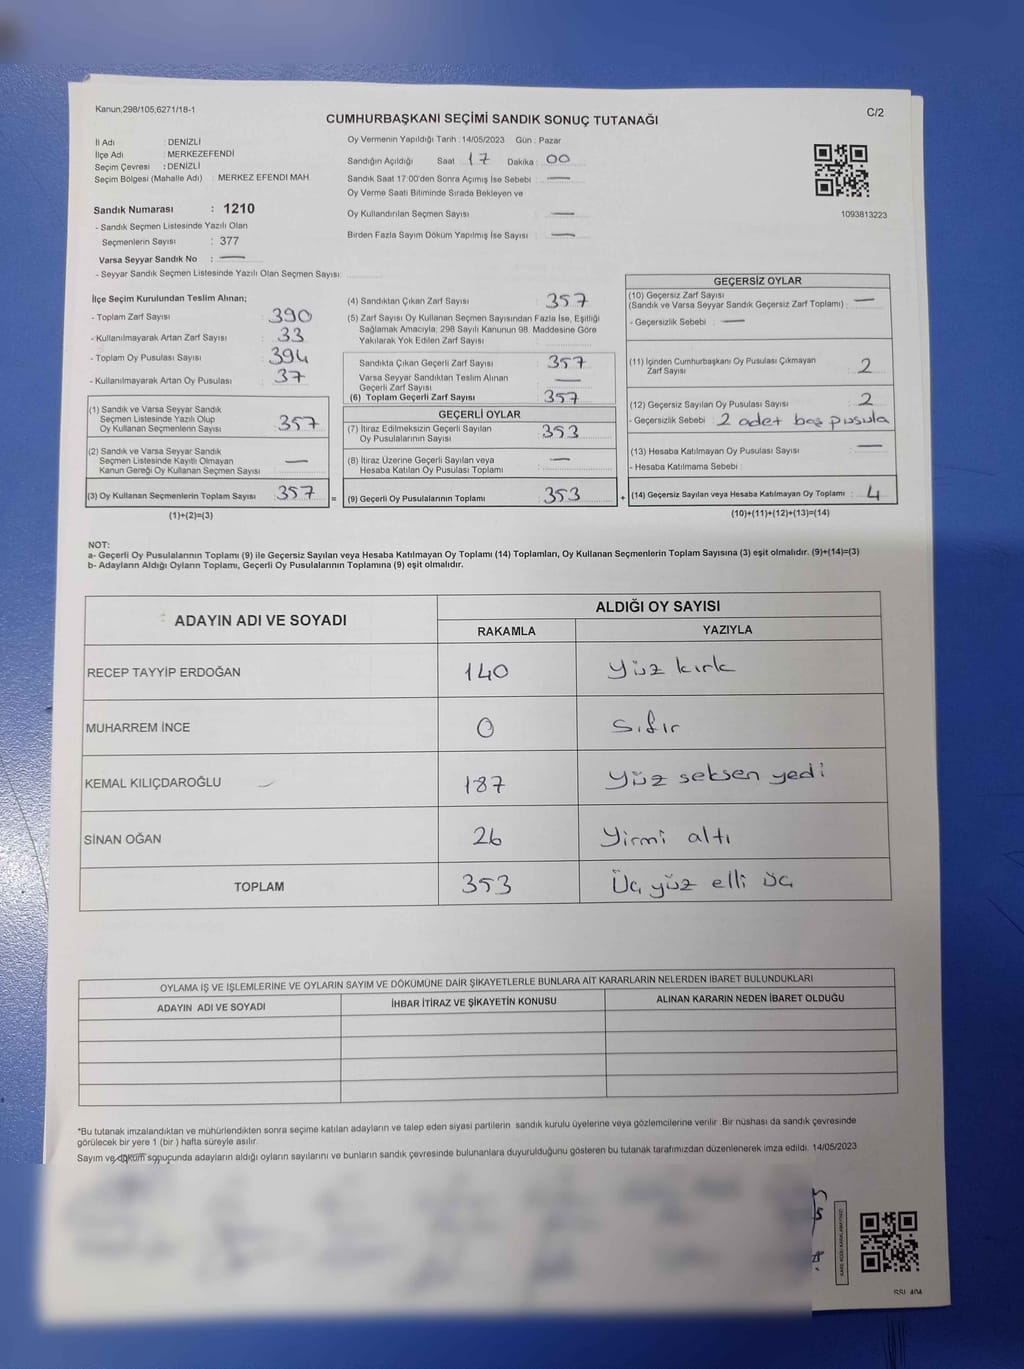 Kanun;298/105,6271/18-1
C/2
CUMHURBAŞKANI SEÇİMİ SANDIK SONUÇ TUTANAĞI
İl Adı : DENİZLİ
İlçe Adı : MERKEZEFENDİ
Seçim Çevresi : DENİZLİ
Seçim Bölgesi (Mahalle Adı) : MERKEZ EFENDİ MAH.
Sandık Numarası : 1210
- Sandık Seçmen Listesinde Yazılı Olan
Seçmenlerin Sayısı : 377
Varsa Seyyar Sandık No : —
- Seyyar Sandık Seçmen Listesinde Yazılı Olan Seçmen Sayısı:
Oy Vermenin Yapıldığı Tarih : 14/05/2023 Gün : Pazar
Sandığın Açıldığı Saat 17 Dakika : 00
Sandık Saat 17:00'den Sonra Açımış İse Sebebi : —
Oy Verme Saati Bitiminde Sırada Bekleyen ve
Oy Kullandırılan Seçmen Sayısı —
Birden Fazla Sayım Döküm Yapılmış İse Sayısı : —
1093813223
İlçe Seçim Kurulundan Teslim Alınan;
- Toplam Zarf Sayısı : 390
- Kullanılmayarak Artan Zarf Sayısı : 33
- Toplam Oy Pusulası Sayısı : 394
- Kullanılmayarak Artan Oy Pusulası : 37
(1) Sandık ve Varsa Seyyar Sandık
Seçmen Listesinde Yazılı Olup
Oy Kullanan Seçmenlerin Sayısı : 357
(2) Sandık ve Varsa Seyyar Sandık
Seçmen Listesinde Kayıtlı Olmayan
Kanun Gereği Oy Kullanan Seçmen Sayısı : —
(3) Oy Kullanan Seçmenlerin Toplam Sayısı : 357 =
(1)+(2)=(3)
(4) Sandıktan Çıkan Zarf Sayısı : 357
(5) Zarf Sayısı Oy Kullanan Seçmen Sayısından Fazla İse, Eşitliği
Sağlamak Amacıyla, 298 Sayılı Kanunun 98. Maddesine Göre
Yakılarak Yok Edilen Zarf Sayısı :
Sandıkta Çıkan Geçerli Zarf Sayısı : 357
Varsa Seyyar Sandıktan Teslim Alınan
Geçerli Zarf Sayısı : —
(6) Toplam Geçerli Zarf Sayısı : 357
GEÇERLİ OYLAR
(7) İtiraz Edilmeksizin Geçerli Sayılan
Oy Pusulalarının Sayısı : 353
(8) İtiraz Üzerine Geçerli Sayılan veya
Hesaba Katılan Oy Pusulası Toplamı : —
(9) Geçerli Oy Pusulalarının Toplamı : 353 +
GEÇERSİZ OYLAR
(10) Geçersiz Zarf Sayısı
(Sandık ve Varsa Seyyar Sandık Geçersiz Zarf Toplamı) : —
- Geçersizlik Sebebi : —
(11) İçinden Cumhurbaşkanı Oy Pusulası Çıkmayan
Zarf Sayısı : 2
(12) Geçersiz Sayılan Oy Pusulası Sayısı : 2
- Geçersizlik Sebebi : 2 adet boş pusula
(13) Hesaba Katılmayan Oy Pusulası Sayısı : —
- Hesaba Katılmama Sebebi :
(14) Geçersiz Sayılan veya Hesaba Katılmayan Oy Toplamı : 4
(10)+(11)+(12)+(13)=(14)
NOT:
a- Geçerli Oy Pusulalarının Toplamı (9) ile Geçersiz Sayılan veya Hesaba Katılmayan Oy Toplamı (14) Toplamları, Oy Kullanan Seçmenlerin Toplam Sayısına (3) eşit olmalıdır. (9)+(14)=(3)
b- Adayların Aldığı Oyların Toplamı, Geçerli Oy Pusulalarının Toplamına (9) eşit olmalıdır.
ADAYIN ADI VE SOYADI
ALDIĞI OY SAYISI
RAKAMLA YAZIYLA
RECEP TAYYİP ERDOĞAN 140 Yüz kırk
MUHARREM İNCE 0 Sıfır
KEMAL KILIÇDAROĞLU 187 Yüz seksen yedi
SİNAN OĞAN 26 Yirmi altı
TOPLAM 353 Üç yüz elli üç
OYLAMA İŞ VE İŞLEMLERİNE VE OYLARIN SAYIM VE DÖKÜMÜNE DAİR ŞİKAYETLERLE BUNLARA AİT KARARLARIN NELERDEN İBARET BULUNDUKLARI
ADAYIN ADI VE SOYADI İHBAR İTİRAZ VE ŞİKAYETİN KONUSU ALINAN KARARIN NEDEN İBARET OLDUĞU
*Bu tutanak imzalandıktan ve mühürlendikten sonra seçime katılan adayların ve talep eden siyasi partilerin sandık kurulu üyelerine veya gözlemcilerine verilir. Bir nüshası da sandık çevresinde
görülecek bir yere 1 (bir ) hafta süreyle asılır.
Sayım ve döküm sonucunda adayların aldığı oyların sayılarını ve bunların sandık çevresinde bulunanlara duyurulduğunu gösteren bu tutanak tarafımızdan düzenlenerek imza edildi. 14/05/2023